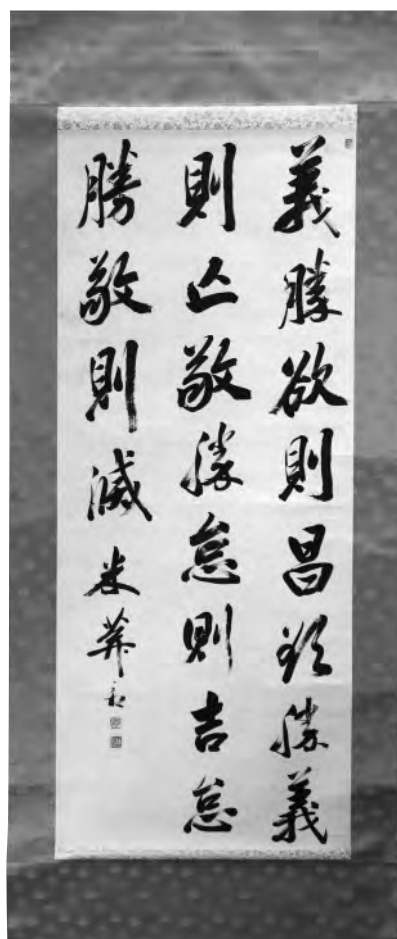 義勝欲則昌欲勝義
則亡敬勝怠則吉怠
勝敬則滅 米葊